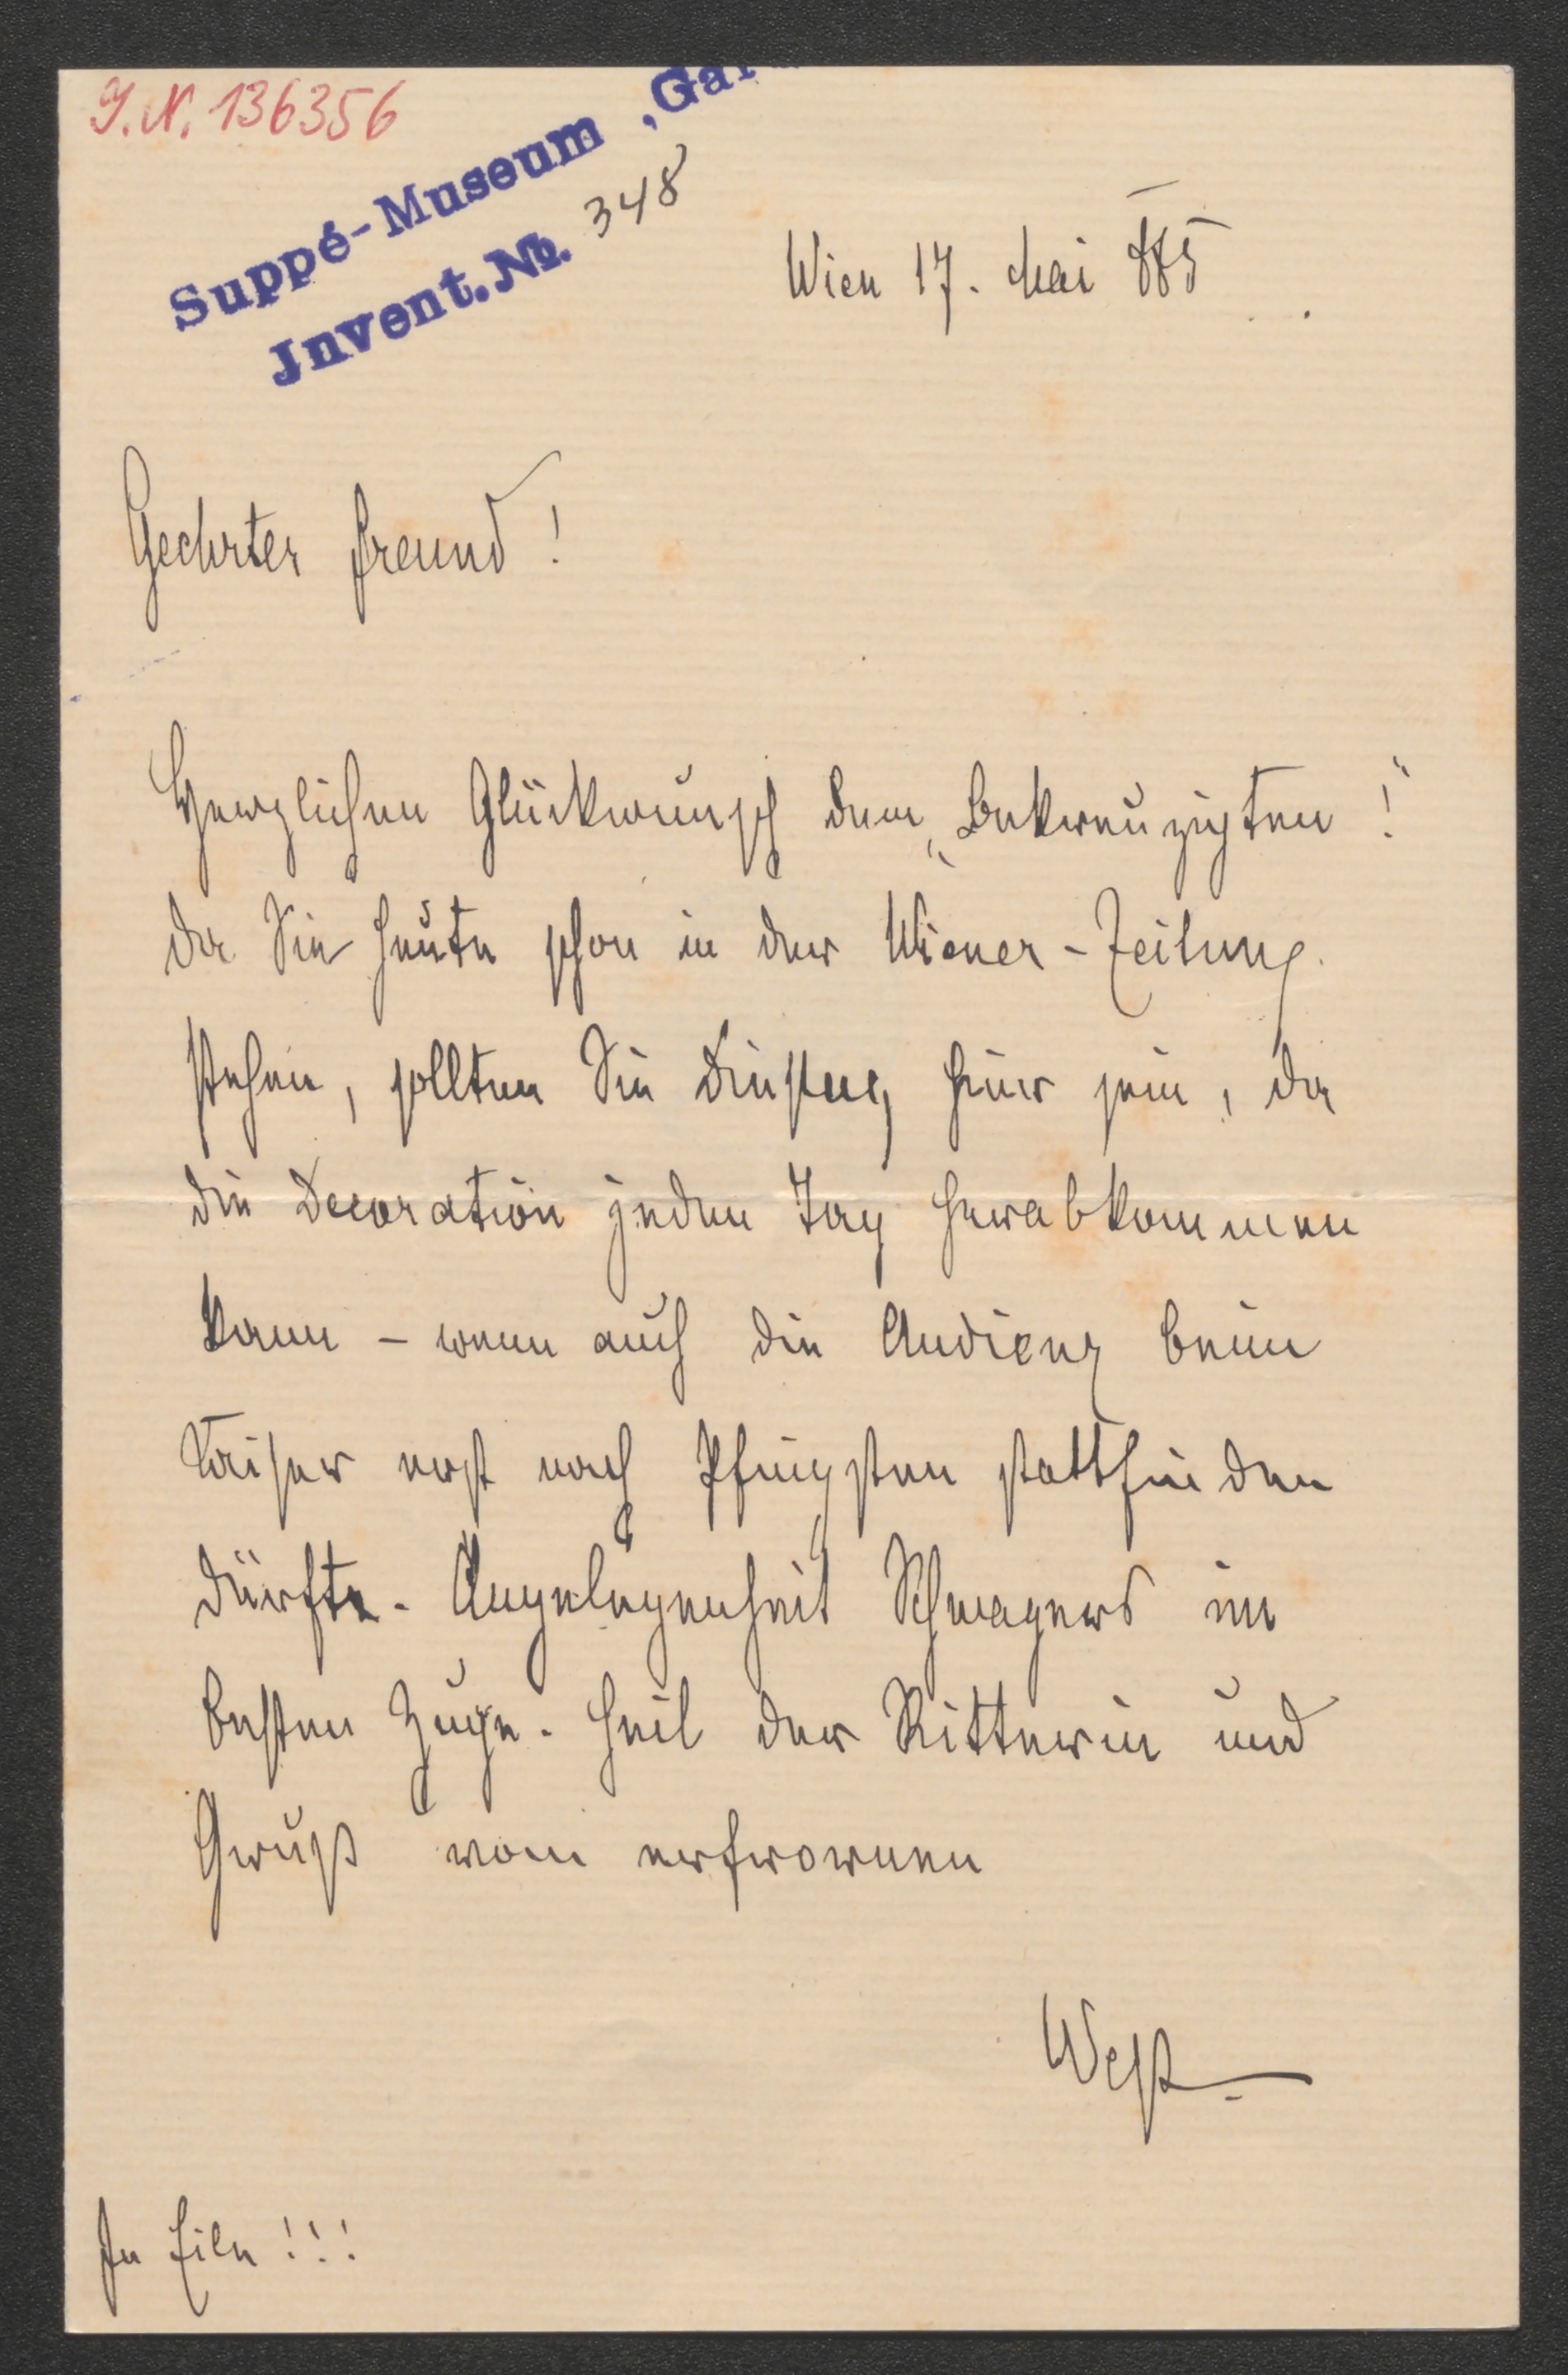 J.N. 136356
Suppé-Museum ‚Gar
Invent. No. 348
Wien 17. Mai 885
Geehrter Freund!
Herzlichen Glückwunsch dem „Bekreuzigten!“
Da Sie heute schon in der Wiener-Zeitung
stehen, sollten Sie Dienstag hier sein, da
die Decoration jeden Tag herabkommen
kann – wenn auch die Audienz beim
Kaiser erst nach Pfingsten stattfinden
dürfte. Angelegenheit Schwagers im
besten Zuge. Heil der Ritterin und
Gruß vom erfrornen
West
In Eile!!!